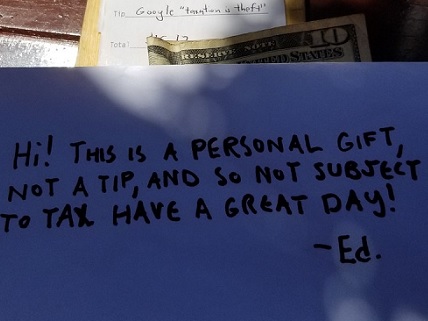 TIP Google "taxation is theft"
Total:
RESERVE NOTE 10
UNITED STATES
Hi! THIS IS A PERSONAL GIFT,
NOT A TIP, AND SO NOT SUBJECT
TO TAX HAVE A GREAT DAY!
-Ed.